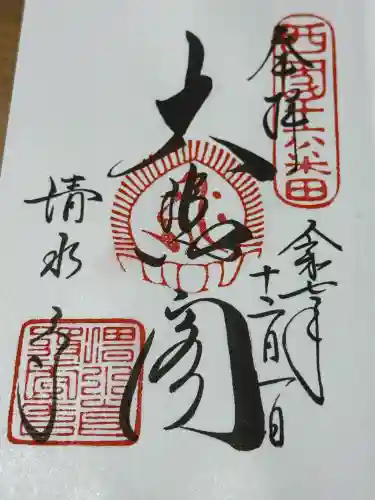 奉拝
西国十六番
大悲閣
令和七年
十二月一日
清水寺